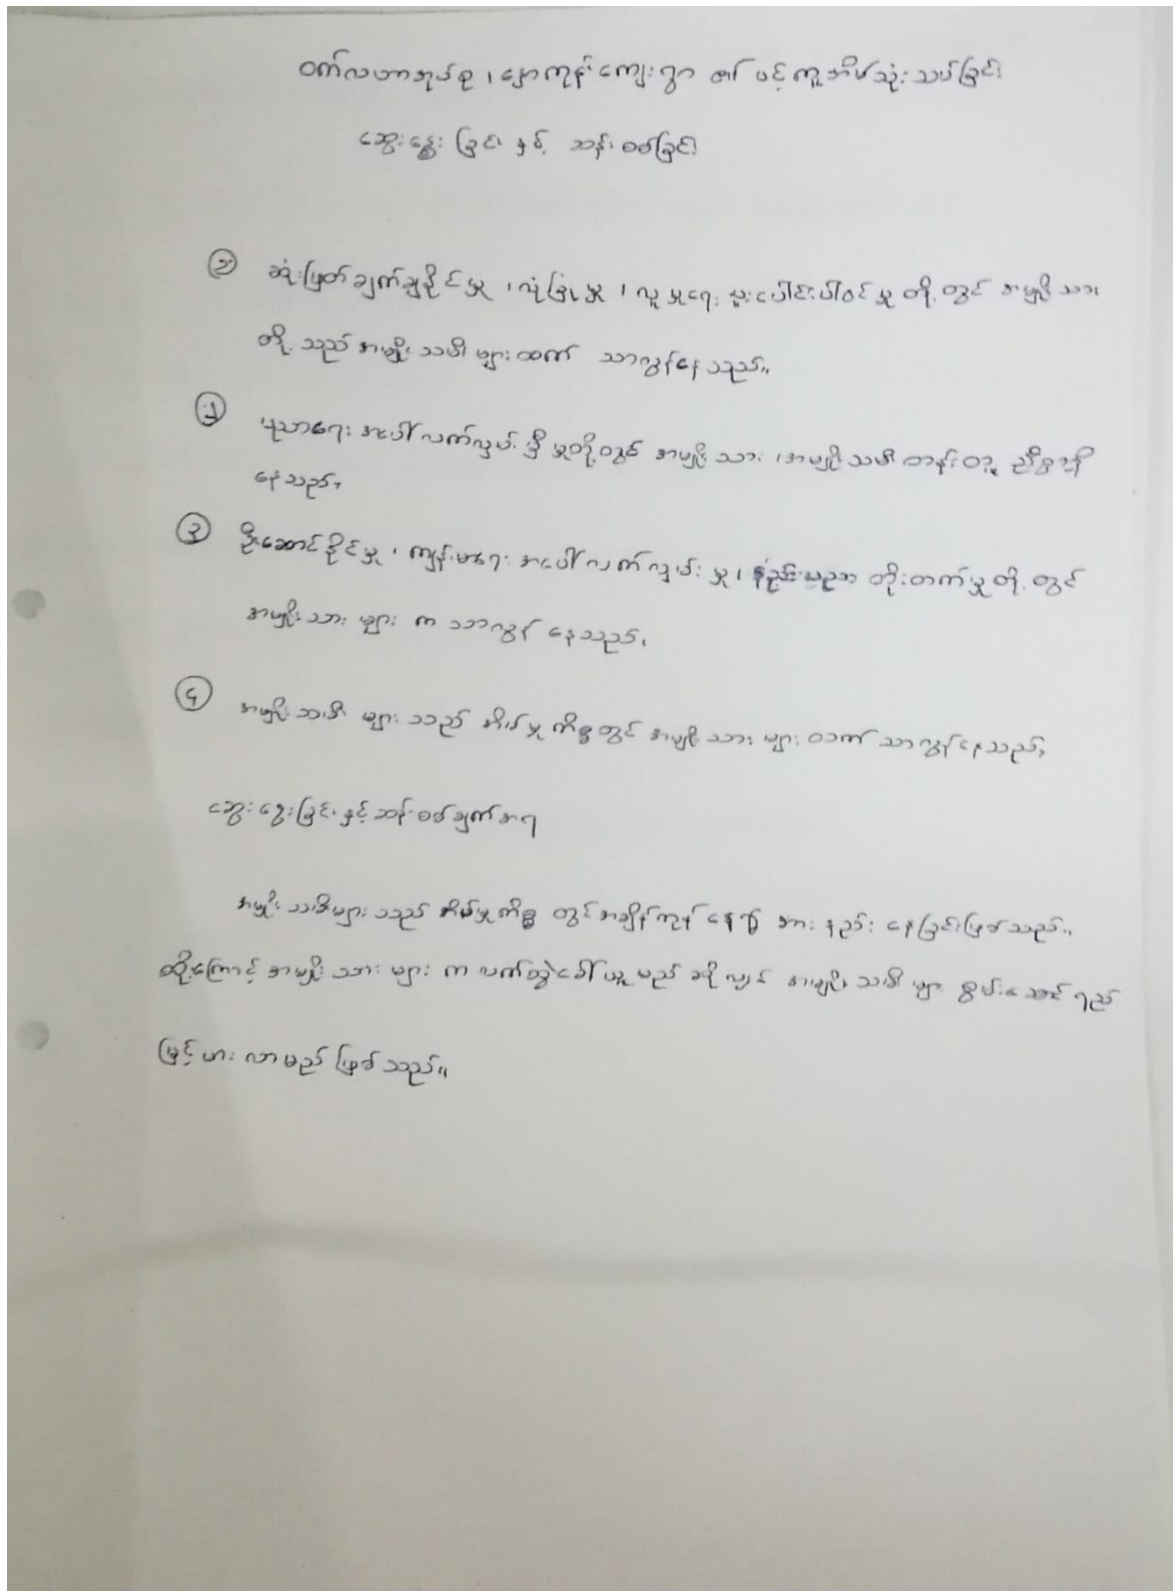 ဝက်လဟာအုပ်စု ၊ နှောကုန်းကျေးရွာ ဇင် ပင့်ကူအိမ်သုံးသပ်ခြင်း
ဆွေးနွေးခြင်း နှင့် ဆန်းစစ်ခြင်း
၁ ဆုံးဖြတ်ချက်ချနိုင်မှု ၊ လုံခြုံမှု ၊ လူမှုရေး ပူးပေါင်းပါဝင်မှု တို့တွင် အမျိုးသား
တို့ သည် အမျိုးသမီး များထက် သာလွန်နေသည်။
၂ ပညာရေး အပေါ် လက်လှမ်းမှီမှုတို့တွင် အမျိုးသား ၊ အမျိုးသမီး တန်းတူ ညီမျှ
နေသည်။
၃ ဦးဆောင်နိုင်မှု ၊ ကျန်းမာရေး အပေါ် လက်လှမ်းမှု ၊ နည်းပညာ တိုးတက်မှု တို့တွင်
အမျိုးသား များ က သာလွန် နေသည်။
၄ အမျိုးသမီး များ သည် အိမ်မှုကိစ္စတွင် အမျိုးသား များ ထက် သာလွန်နေသည်။
ဆွေးနွေးခြင်း နှင့် ဆန်းစစ်ချက်အရ
အမျိုးသမီးများ သည် အိမ်မှုကိစ္စ တွင် အချိန်ကုန် နေ၍ အား နည်း နေခြင်းဖြစ်သည်။
ထို့ကြောင့် အမျိုးသား များ က လက်တွဲခေါ်ယူ မည် ဆိုလျှင် အမျိုးသမီး များ စွမ်းဆောင် ရည်
မြင့်မား လာမည် ဖြစ်သည်။